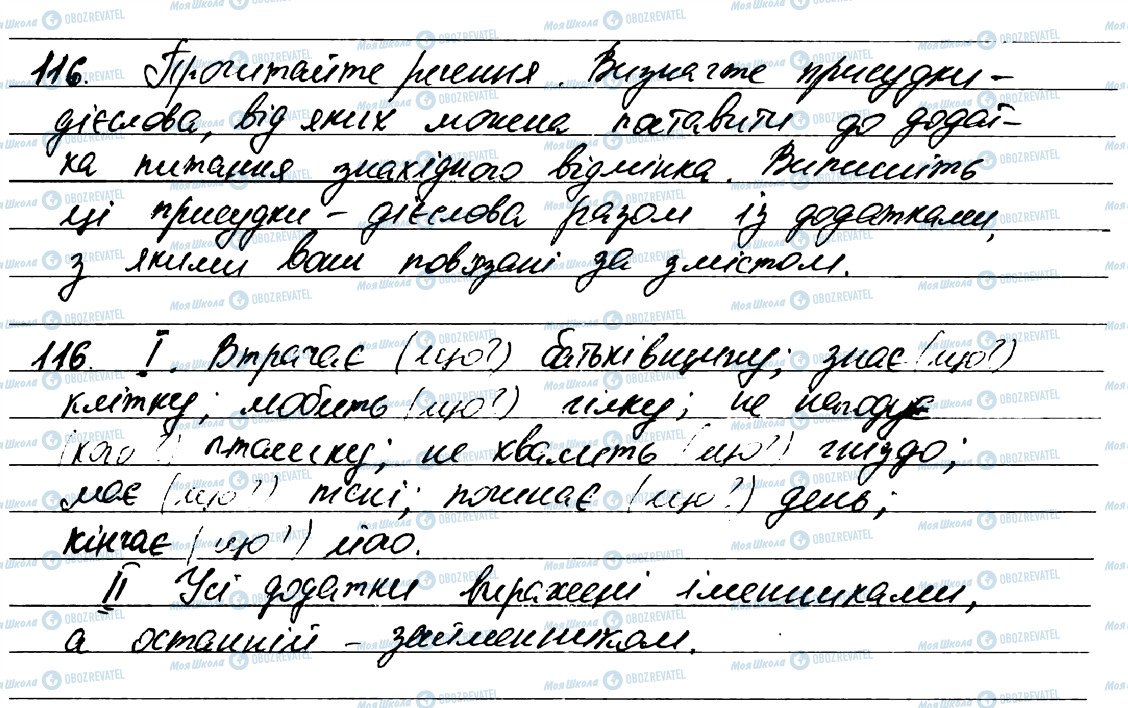 116. Прочитайте речення. Визначте присудки-
дієслова, від яких можна поставити до додат-
ка питання знахідного відмінка. Випишіть
ці присудки - дієслова разом із додатками,
з якими вони пов'язані за змістом.
116. I. Втрачає (що?) батьківщину; знає (що?)
клітку; любить (що?) гілку; не нагодує
(кого?) пташку; не хвалить (що?) гніздо;
має (що?) пісні; починає (що?) день;
кінчає (що?) його.
II Усі додатки виражені іменниками,
а останній - займенником.
МояШкола OBOZREVATEL